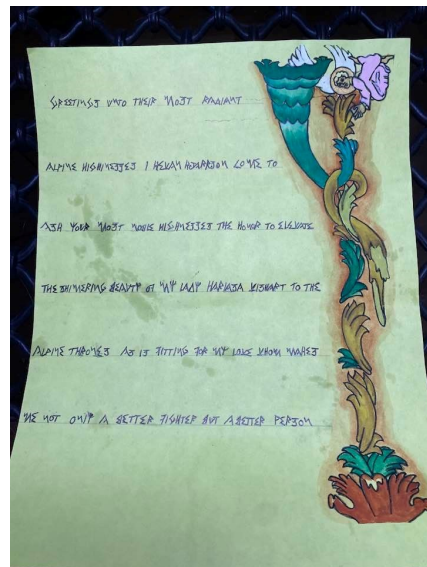 GREETINGS UNTO THEIR MOST RADIANT
ALPINE HIGHNESSES I HEVAN HEDARRSON COME TO
ASK YOUR MOST NOBLE HIGHNESSES THE HONOR TO ELEVATE
THE SHIMERING BEAUTY OF MY LADY HARLAJA VISHART TO THE
ALPINE THRONES AS IS FITTING FOR MY LOVE WHOM MAKES
ME NOT ONLY A BETTER FIGHTER BUT A BETTER PERSON